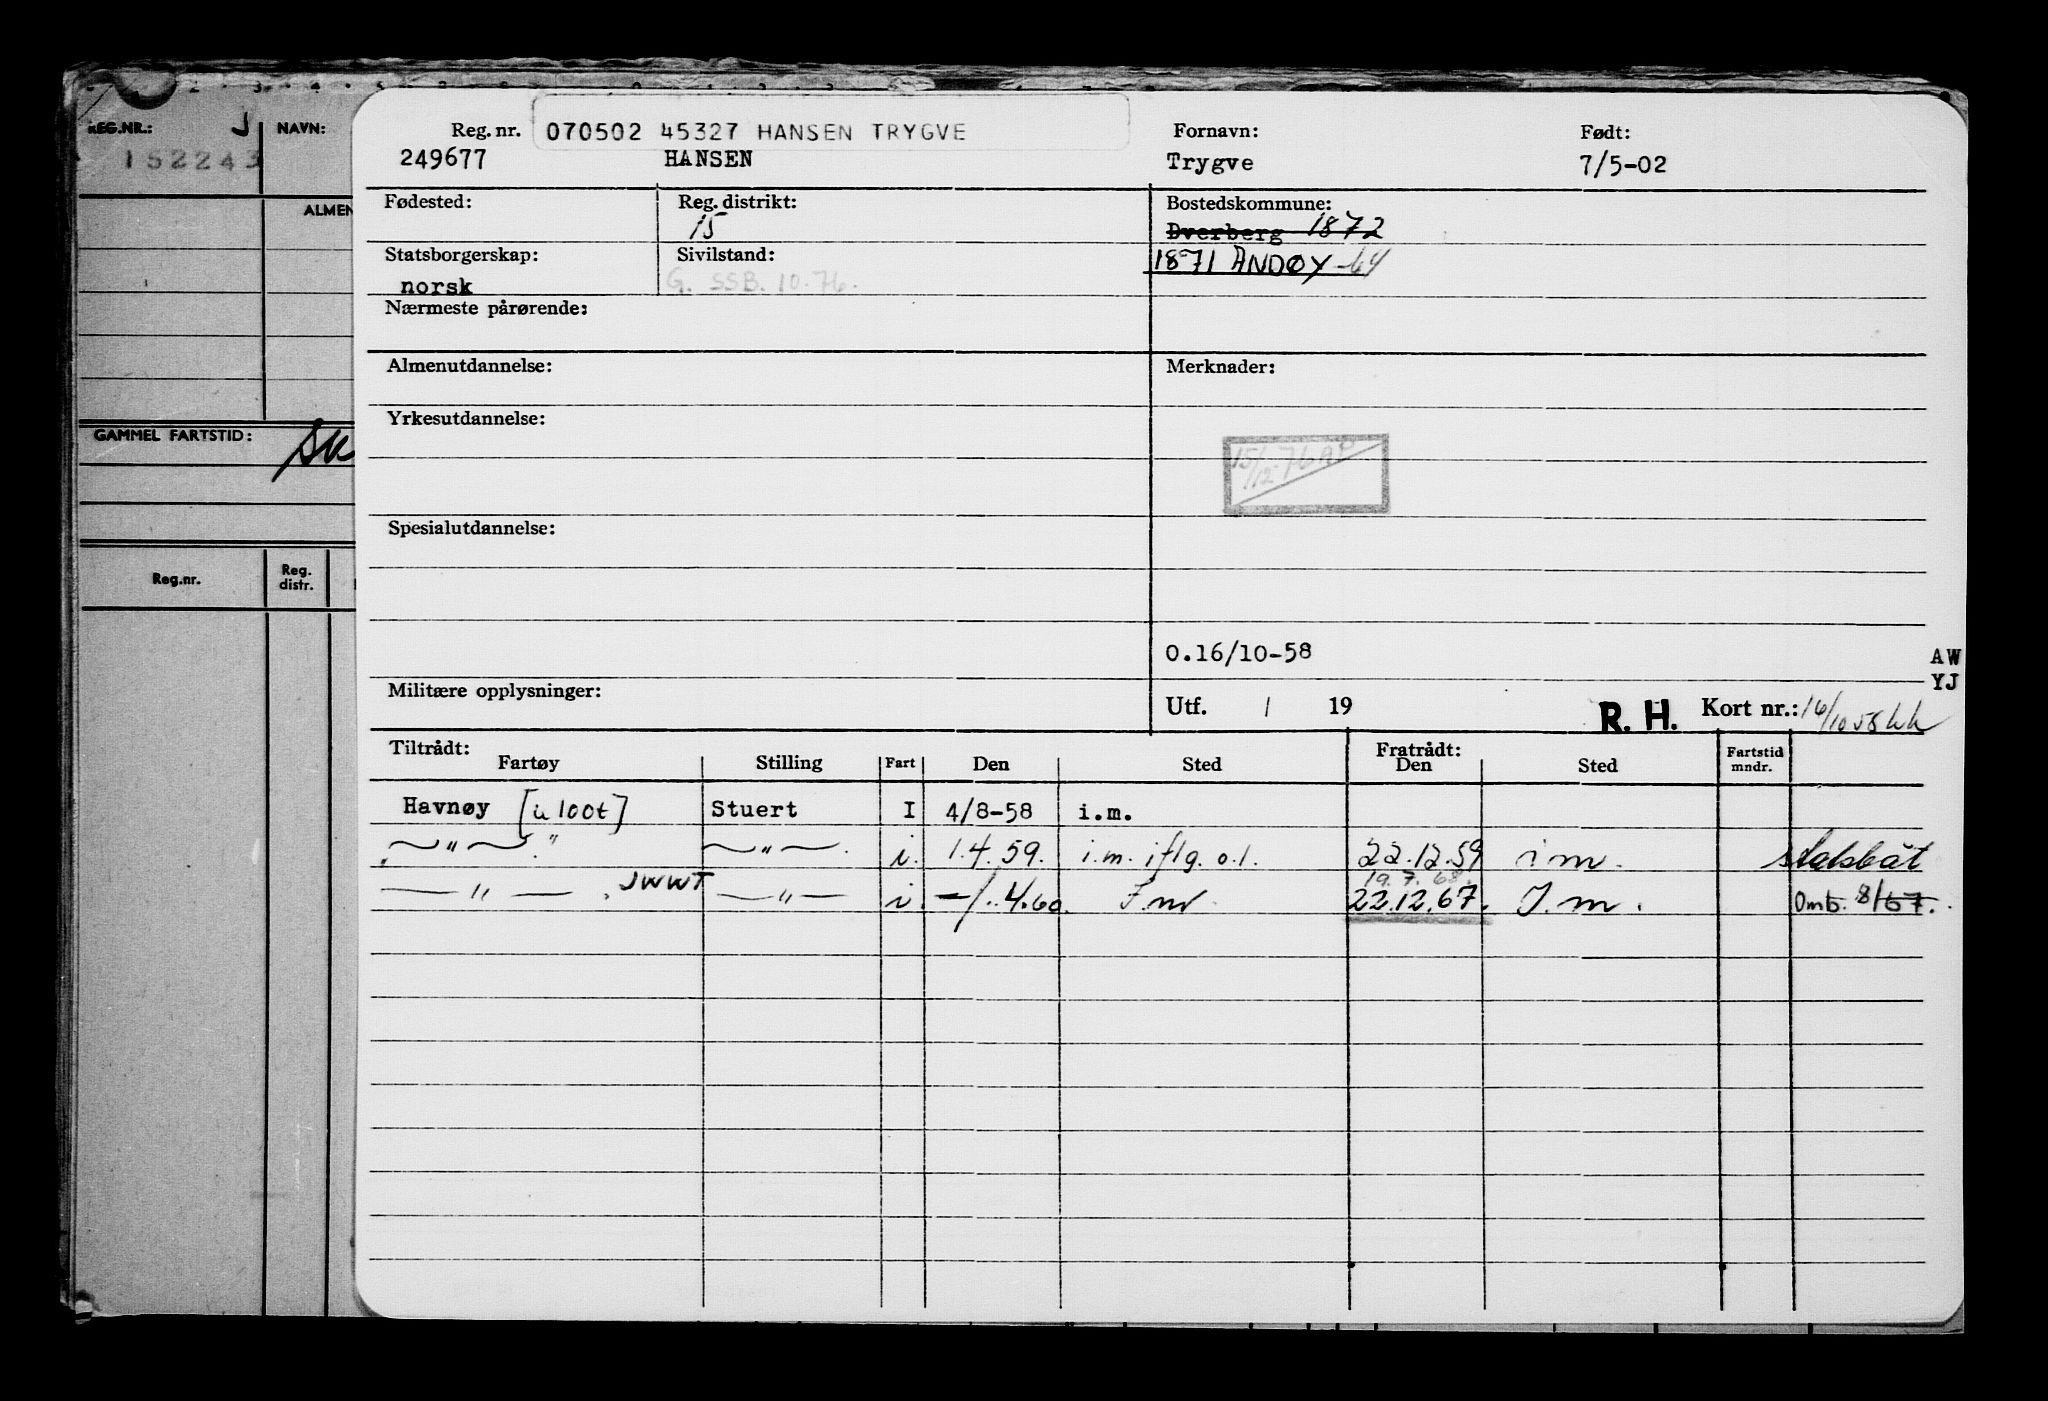 REG.NR.: J NAVN:
152243
ALMEN
GAMMEL FARTSTID:
Reg.nr. Reg. distr.
Reg. nr. 070502 45327 HANSEN TRYGVE Fornavn: Født:
249677 HANSEN Trygve 7/5-02
Fødested: Reg. distrikt: Bostedskommune:
15 Dverberg 1872
Statsborgerskap: Sivilstand: 1871 ANDØY -64
norsk G. SSB. 10.76.
Nærmeste pårørende:
Almenutdannelse: Merknader:
Yrkesutdannelse:
15/12-76 AP
Spesialutdannelse:
O.16/10-58 AW
Militære opplysninger: YJ
Utf. / 19 R. H. Kort nr.: 16/10 58
Tiltrådt: Fratrådt: Fartstid
Fartøy Stilling Fart Den Sted Den Sted mndr.
Havnøy [u 100t] Stuert I 4/8-58 i.m.
" " i. 1.4.59. i.m. iflg. o.l. 22.12.59 i m. statsbåt
19.7.68.
" . JWWT " i - / .4.60. I.m 22.12.67. I.m. Omb. 8/67.